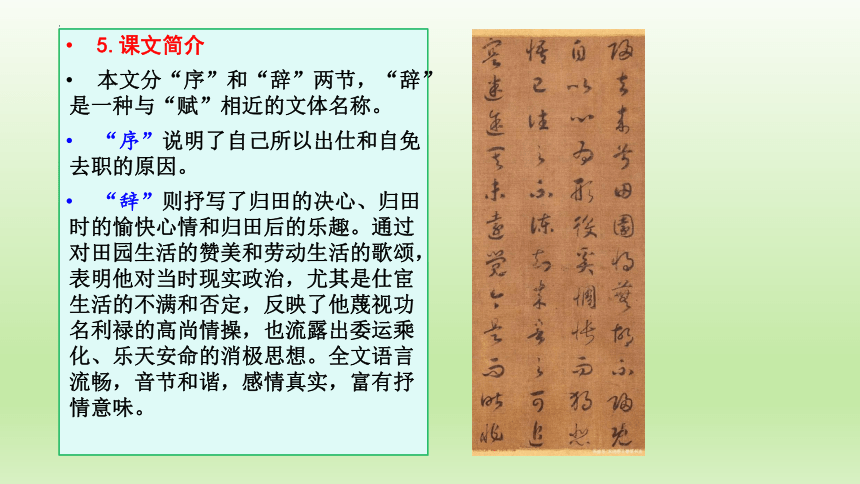 • 5.课文简介
• 本文分“序”和“辞”两节，“辞”
是一种与“赋”相近的文体名称。
• “序”说明了自己所以出仕和自免
去职的原因。
• “辞”则抒写了归田的决心、归田
时的愉快心情和归田后的乐趣。通过
对田园生活的赞美和劳动生活的歌颂，
表明他对当时现实政治，尤其是仕宦
生活的不满和否定，反映了他蔑视功
名利禄的高尚情操，也流露出委运乘
化、乐天安命的消极思想。全文语言
流畅，音节和谐，感情真实，富有抒
情意味。
歸去来兮田園將蕪胡不歸既
自以心為形役奚惆悵而獨悲
悟已往之不諫知来者之可追
寔迷途其未遠覺今是而昨非